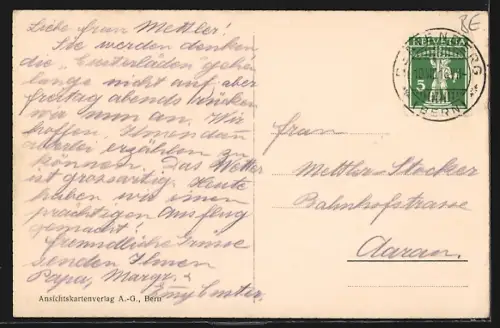 Liebe Frau Mettler!
Sie werden denken
die
lange nicht auf aber
freitag abends rücken
wir nun an. Wir
hoffen, Ihnen dann
allerlei erzählen zu
können. Das Wetter
ist grossartig. Heute
haben wir einen
prächtigen Ausflug
gemacht!
freundliche Grüsse
senden Ihnen
Papa, Margr. &
Ansichtskartenverlag A.-G., Bern
BE
HELVETIA
5
BERN
Frau
Mettler-Stocker
Bahnhofstrasse
Aarau.